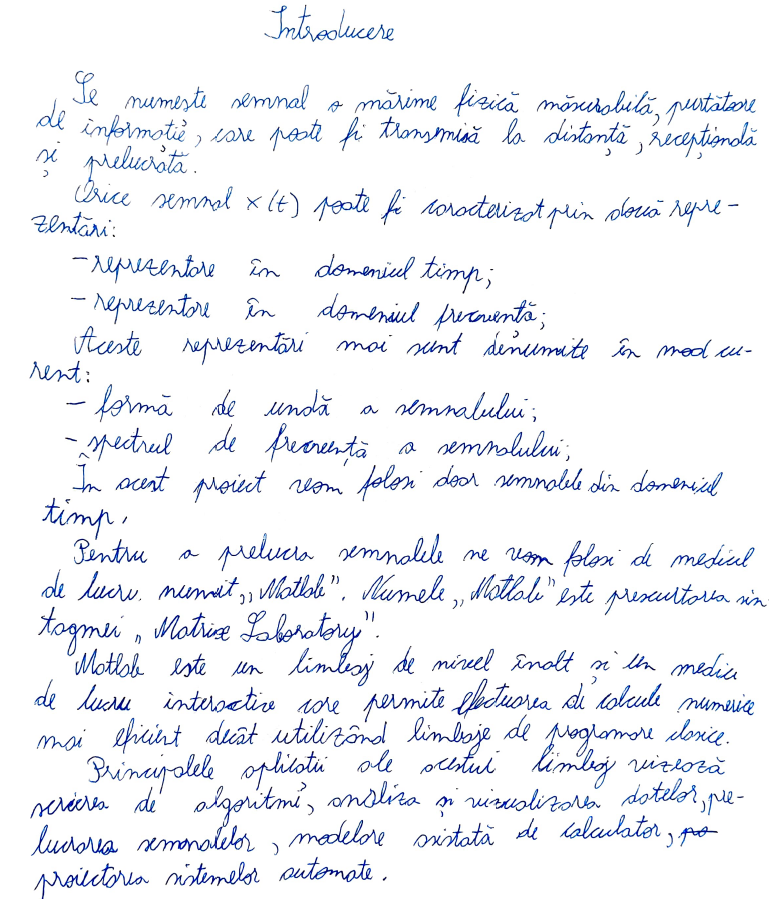 Introducere
Se numește semnal o mărime fizică măsurabilă, purtătoare
de informație, care poate fi transmisă la distanță, recepționată
și prelucrată.
Orice semnal x(t) poate fi caracterizat prin două repre-
zentări:
- reprezentare în domeniul timp;
- reprezentare în domeniul frecvență;
Aceste reprezentări mai sunt denumite în mod cu-
rent:
- formă de undă a semnalului;
- spectrul de frecvență a semnalului;
În acest proiect vom folosi doar semnalele din domeniul
timp.
Pentru a prelucra semnalele ne vom folosi de mediul
de lucru numit „Matlab". Numele „Matlab" este prescurtarea sin
tagmei „Matrix Laboratory".
Matlab este un limbaj de nivel înalt și un mediu
de lucru interactive care permite efectuarea de calcule numerice
mai eficient decât utilizând limbaje de programare clasice.
Principalele aplicatii ale acestui limbaj vizează
scrierea de algoritmi, analiza și vizualizarea datelor, pre-
lucrarea semnalelor, modelare asistată de calculator,
proiectarea sistemelor automate.